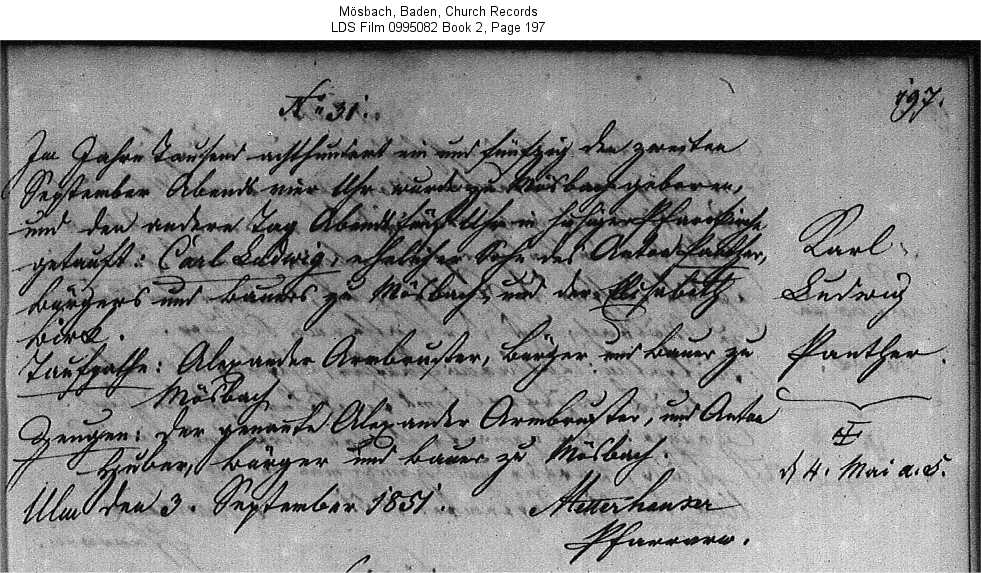 Mösbach, Baden, Church Records
LDS Film 0995082 Book 2, Page 197
197.
No 31.
Im Jahre Tausend achthundert ein und fünfzig den zweiten
September Abends vier Uhr wurde zu Mösbach geboren,
und den andern Tag Abends fünf Uhr in hiesiger Pfarrkirche
getauft: Carl Ludwig, ehelicher Sohn des Anton Panther,
Bürgers und Bauers zu Mösbach, und der Elisabeth
Birk.
Taufpathe: Alexander Armbruster, Bürger und Bauer zu
Mösbach.
Zeugen: Der genannte Alexander Armbruster, und Anton
Huber, Bürger und Bauer zu Mösbach.
Ulm den 3. September 1851.
Pfarrer.
Karl
Ludwig
Panther.
4. Mai